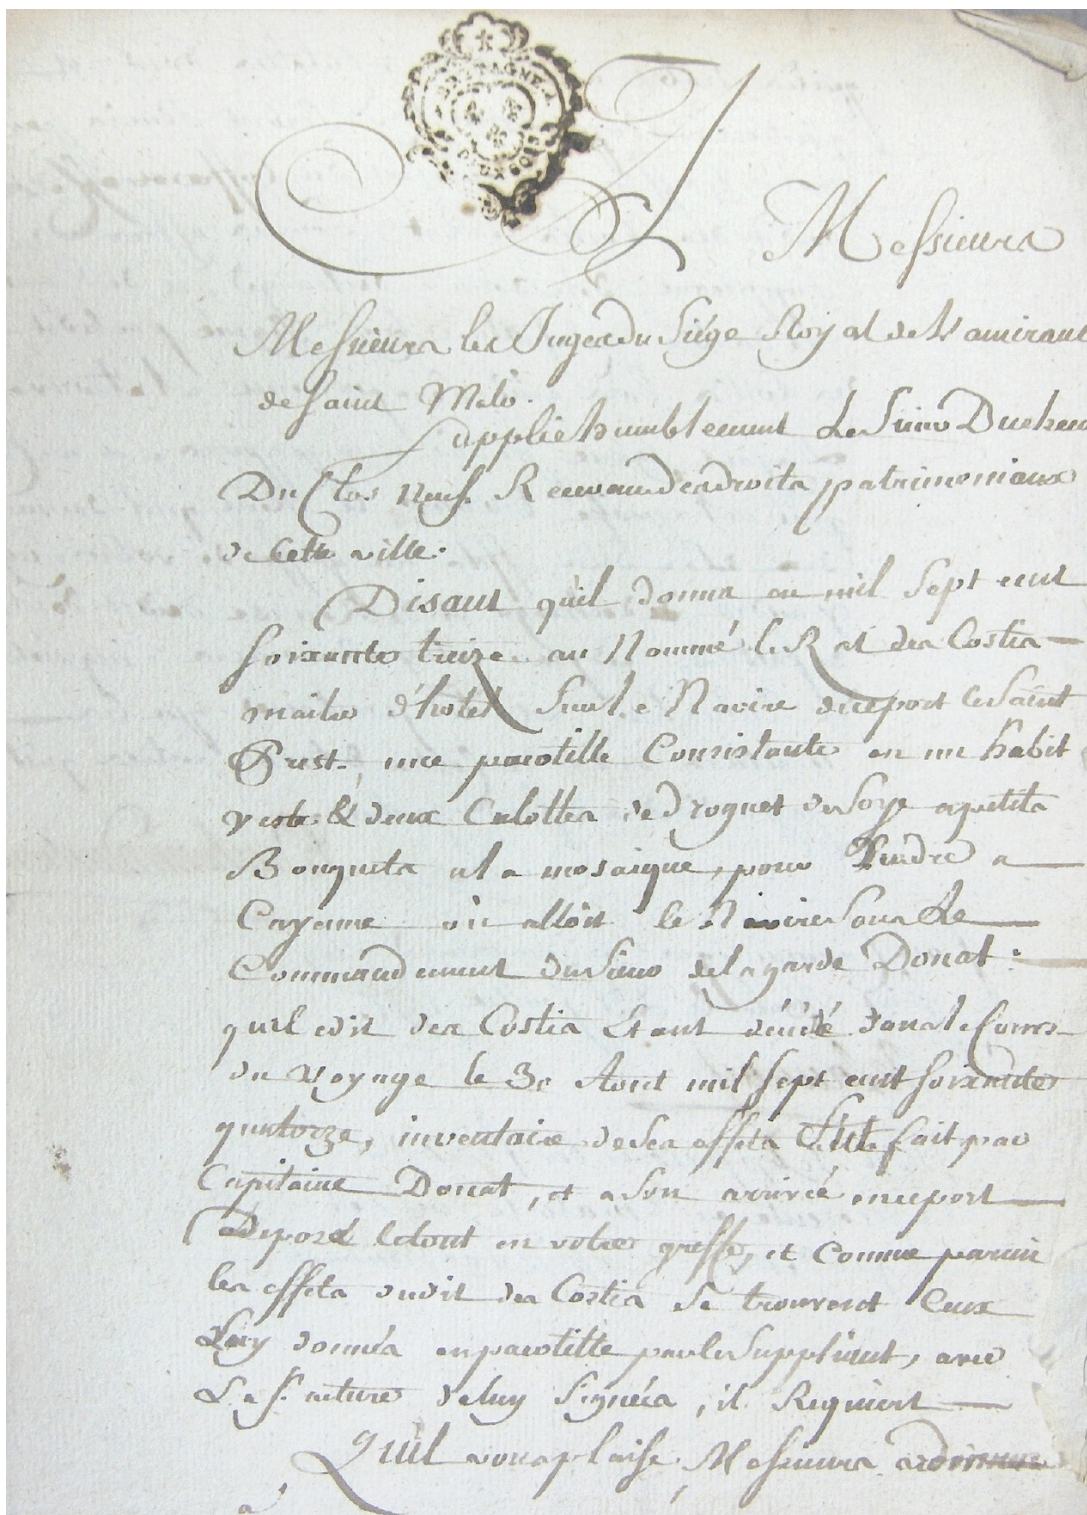 BRETAGNE
A Messieurs
Messieurs les Juges du Siége Royal de L'amiraut
de Saint Malo.
Supplie humblement Le Sieur Duchen
Du Clos Neuf Receveur des droits patrimoniaux
de Cette ville.
Disant qu'il donna en mil Sept cent
Soixante treize au Nommé le Rat des Costis
maitre d'hotel Sur le Navire de ce port le Saint
Prest, une pacotille Consistante en un habit
veste & deux Culottes de Droguet de Soye a petits
Bouquets a la mosaique, pour Vendre a
Cayenne où alloit le Navire Sous Le
Commandement du Sieur de la garde Donat :
qu'l edit des Costis Etant décédé dans le Cours
du Voyage le 30 Aout mil Sept cent Soixante
quatorze, inventaire de Ses effets fait par
Capitaine Donat, et a Son arrivée en ce port
Deposa le tout en votre greffe, et Comme parmi
les effets dudit des Costis Se trouvent Ceux
Luy donnés en pacotille par le Suppliant, avec
La facture de luy Signéé, il Requiert
Qu'il vous plaise, Messieurs
a